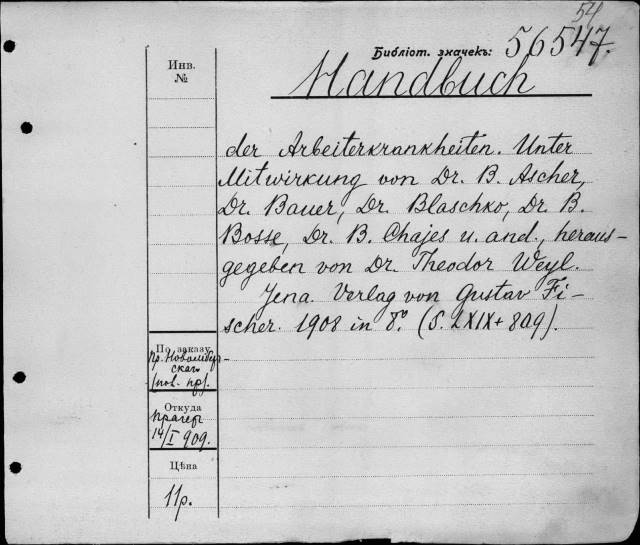 54
Библіот. значекъ: 56547.
Инв.
№
Handbuch
der Arbeiterkrankheiten. Unter
Mitwirkung von Dr. B. Ascher,
Dr. Bauer, Dr. Blaschko, Dr. B.
Bosse, Dr. B. Chajes u. and., heraus-
gegeben von Dr. Theodor Weyl.
Jena. Verlag von Gustav Fi-
scher. 1908 in 8.° (S. LXIX + 809).
По заказу
пр. Новомбер-
скаго
(нов. пр).
Откуда
Прагеръ
14/I 909.
Цѣна
11р.